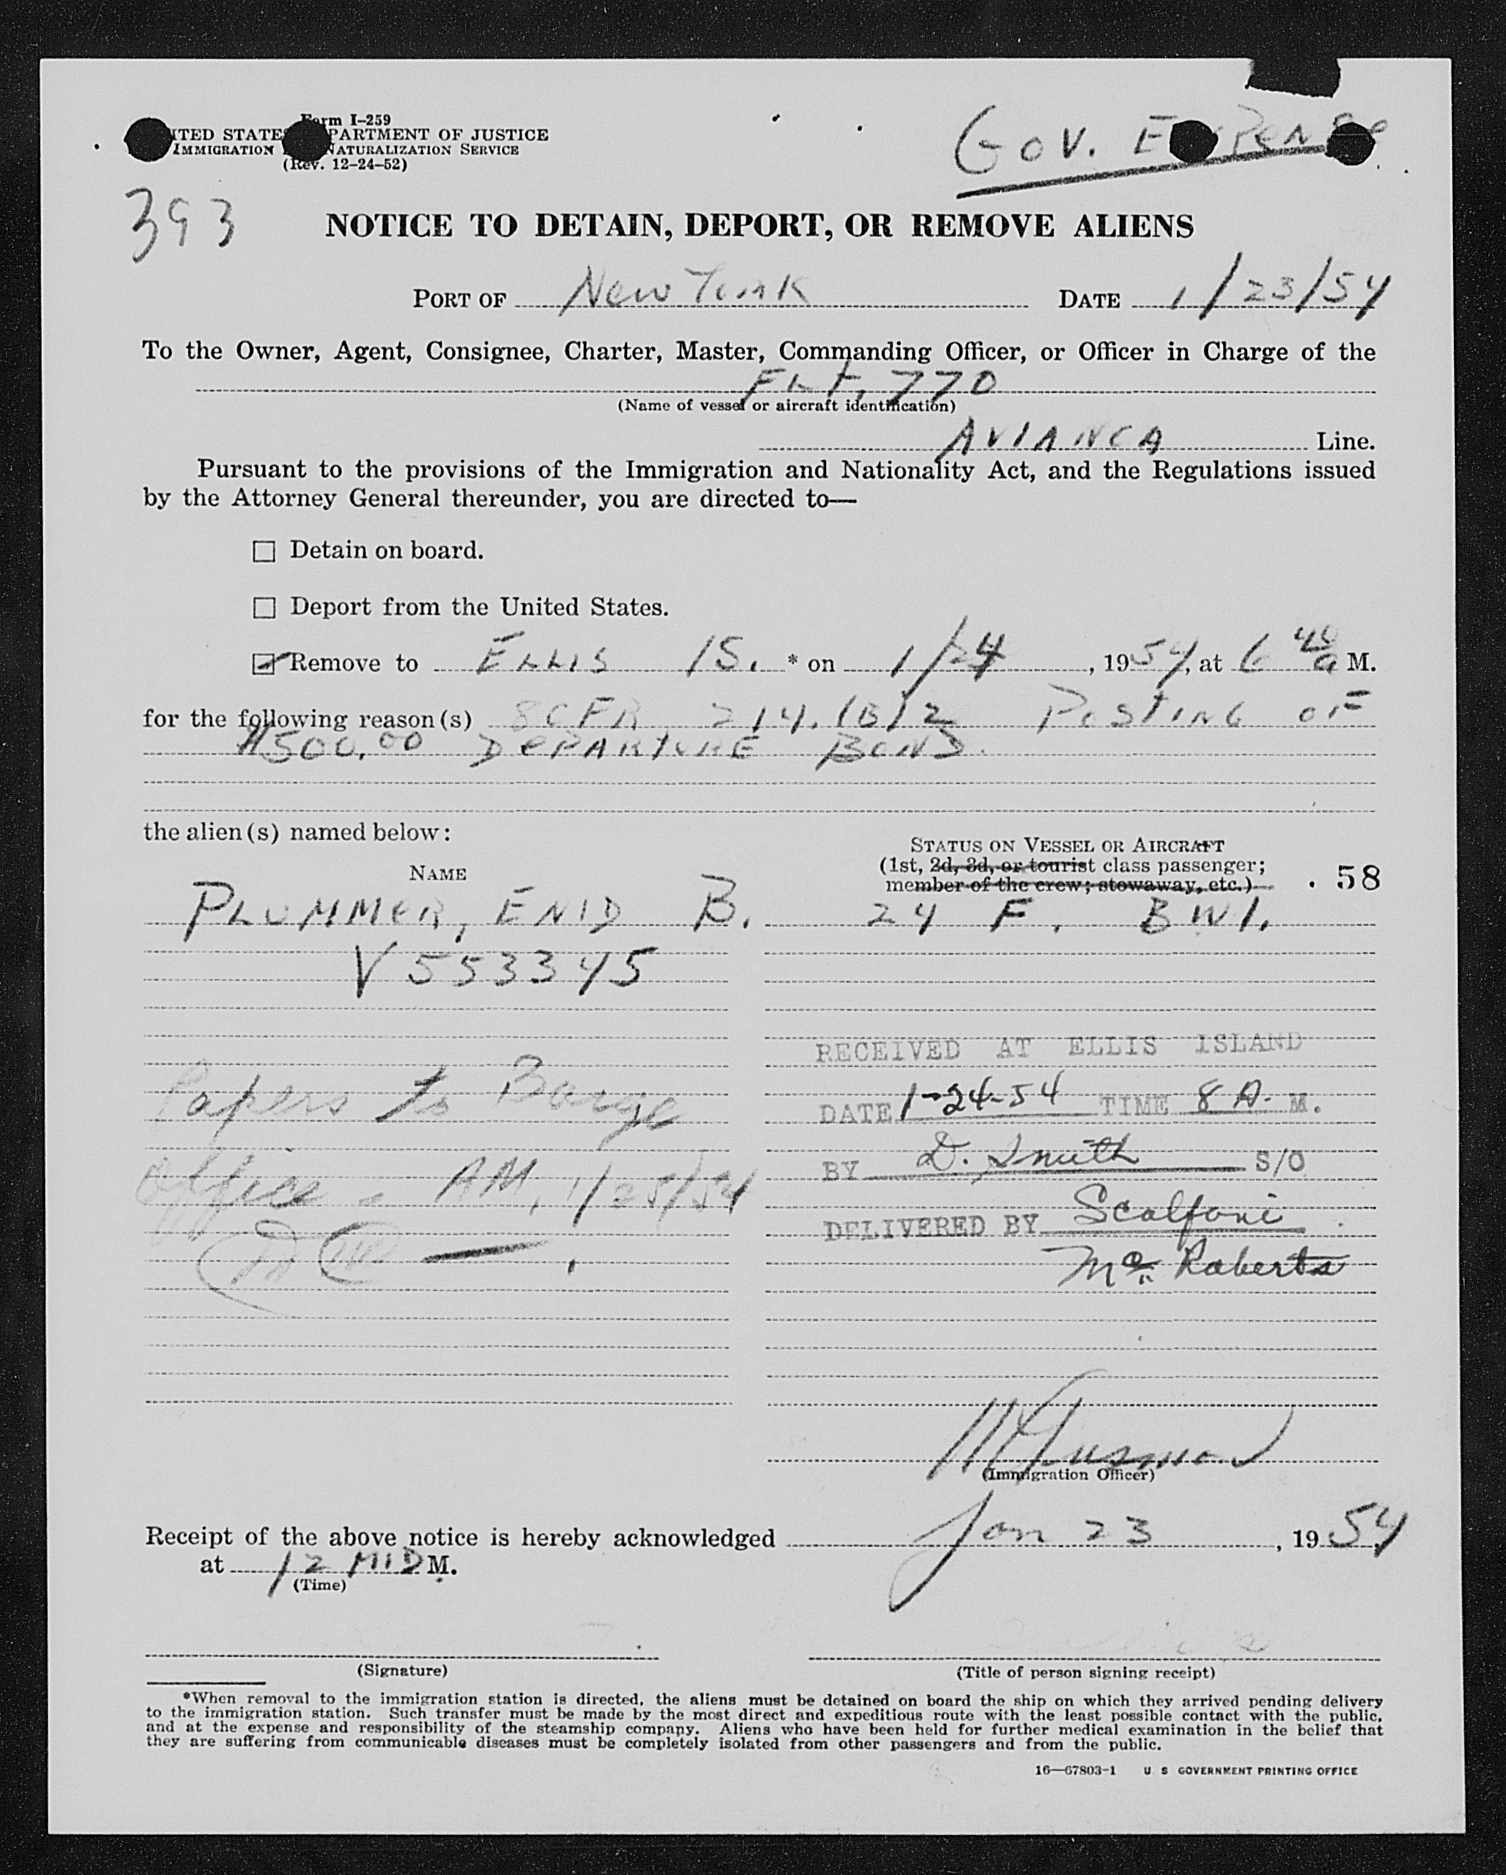 Form I-259
UNITED STATES DEPARTMENT OF JUSTICE
IMMIGRATION NATURALIZATION SERVICE
(Rev. 12-24-52)
GOV. EXPENSE
393
NOTICE TO DETAIN, DEPORT, OR REMOVE ALIENS
PORT OF New York DATE 1/23/54
To the Owner, Agent, Consignee, Charter, Master, Commanding Officer, or Officer in Charge of the
FLT. 770
(Name of vessel or aircraft identification)
AVIANCA Line.
Pursuant to the provisions of the Immigration and Nationality Act, and the Regulations issued
by the Attorney General thereunder, you are directed to—
Detain on board.
Deport from the United States.
Remove to ELLIS IS. * on 1/24, 1954, at 6 40 a M.
for the following reason(s) 8CFR 214.(B)2 POSTING OF
$500.00 DEPARTURE BOND.
the alien(s) named below:
STATUS ON VESSEL OR AIRCRAFT
(1st, 2d, 3d, or tourist class passenger;
NAME
member of the crew; stowaway, etc.)
. 58
PLUMMER, ENID B. 24 F. BWI.
V553345
RECEIVED AT ELLIS ISLAND
Papers to Barge
DATE 1-24-54 TIME 8 A. M.
BY D. Smith S/O
Office - AM, 1/25/54
DELIVERED BY Scalfoni
Mc Roberts
(Immigration Officer)
Receipt of the above notice is hereby acknowledged Jan 23, 1954
at 12 MID M.
(Time)
(Signature)
(Title of person signing receipt)
*When removal to the immigration station is directed, the aliens must be detained on board the ship on which they arrived pending delivery
to the immigration station. Such transfer must be made by the most direct and expeditious route with the least possible contact with the public,
and at the expense and responsibility of the steamship company. Aliens who have been held for further medical examination in the belief that
they are suffering from communicable diseases must be completely isolated from other passengers and from the public.
16—67803-1 U S GOVERNMENT PRINTING OFFICE